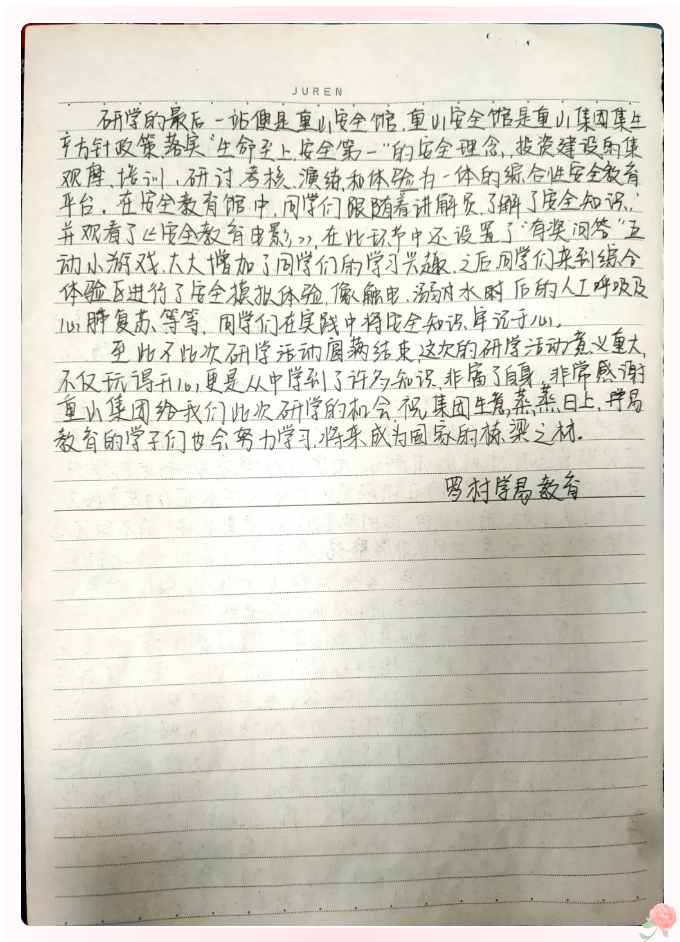 JUREN
研学的最后一站便是重山安全馆,重山安全馆是重山集团集生
产方针政策,落实"生命至上,安全第一"的安全理念,投资建设的集
观摩、培训、研讨、考核、演练和体验为一体的综合性安全教育
平台。在安全教育馆中,同学们跟随着讲解员了解了安全知识,
并观看了《安全教育电影》,在此环节中还设置了"有奖问答"互
动小游戏,大大增加了同学们的学习兴趣,之后,同学们来到综合
体验区进行了安全模拟体验,像触电、溺水时后的人工呼吸及
心肺复苏、等等,同学们在实践中将安全知识,牢记于心。
至此,此次研学活动圆满结束,这次的研学活动意义重大,
不仅玩得开心,更是从中学到了许多知识,丰富了自身,非常感谢
重山集团给我们此次研学的机会,祝集团生意蒸蒸日上,学易
教育的学子们也会努力学习,将来成为国家的栋梁之材。
罗村学易教育